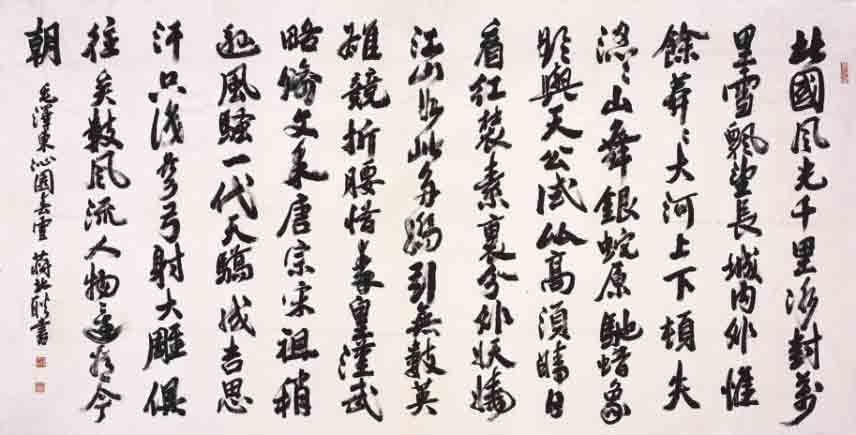 北國风光千里冰封萬
里雪飄望長城内外惟
餘莽〻大河上下頓失
滔〻山舞銀蛇原馳蜡象
欲與天公試比高須晴日
看紅裝素裹分外妖嬈
江山如此多嬌引無數英
雄競折腰惜秦皇漢武
略輸文采唐宗宋祖稍
遜風騷一代天驕成吉思
汗只識彎弓射大雕俱
往矣數风流人物還看今
朝
毛澤東沁園春雪 蔣北耿書